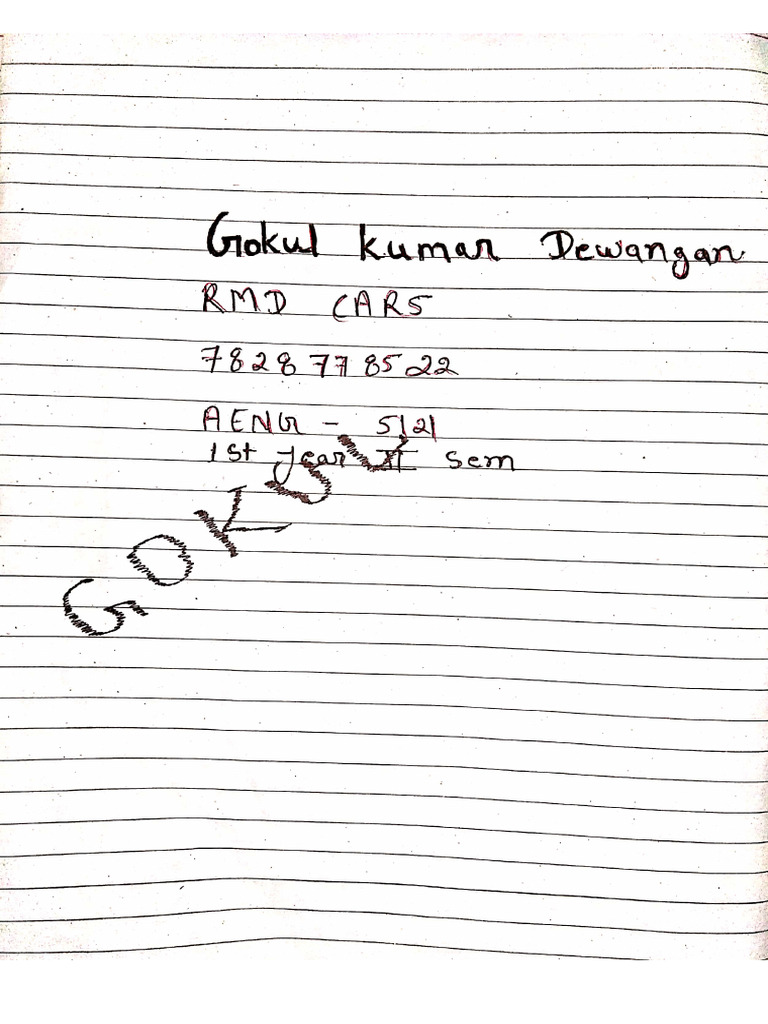 Gokul kumar Dewangan
RMD CARS
7828778522
AENG - 5121
1st year II sem
GOKUL